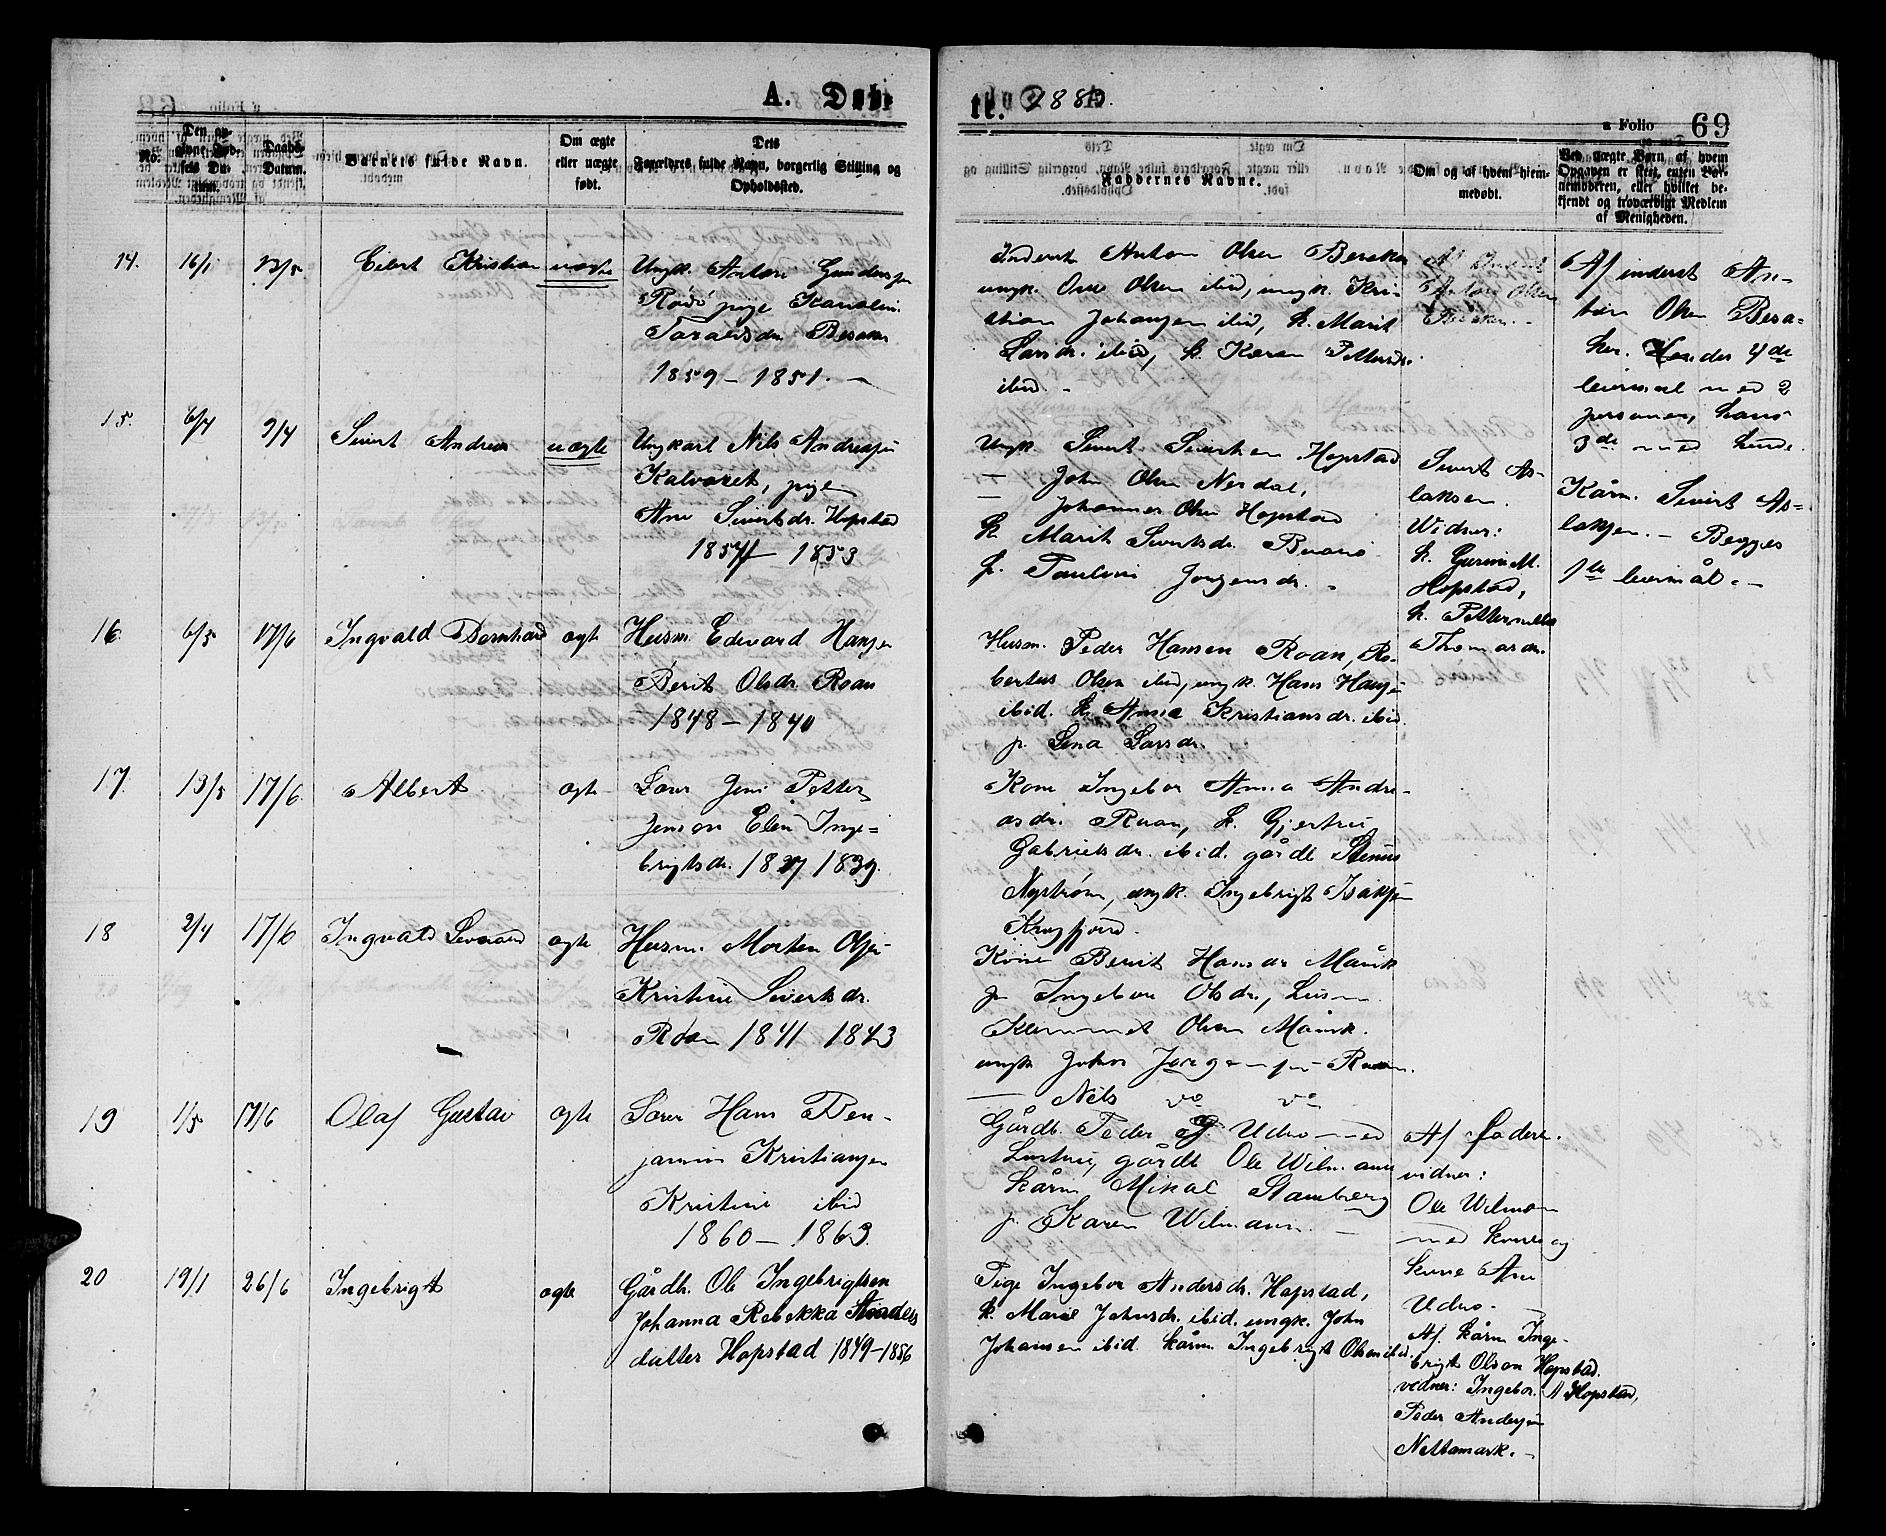 A. Døb-
te. 188
a Folio 69
No.
Daabs-
Datum.
Barnets fulde Navn.
Om ægte
eller uægte
født.
Dets
Forældres fulde Navn, borgerlig Stilling og
Opholdssted.
Faddernes Navne.
Om og af hvem hjem-
medøbt.
Ved uægte Børn af hvem
Opgaven er skeet, enten Bar-
nemoderen, eller hvilket be-
kjendt og troværdigt Medlem
af Menigheden.
14. 16/1 13/5 Eilert Kristian uægte
Ungk. Anton Gundersen
pige
Taraldsdr. Besaker
1859 – 1851. –
Inderst Anton Olsen Besaker
ungk. Ole Olsen ibid, ungk. Kri-
stian Johansen ibid, k. Marit
Larsdr. ibid, k. Karen Pettersdr.
ibid. –
Af Inderst
Anton Olsen
Besaker. –
Af inderst An-
ton Olsen Besa-
ker. Hendes 4de
leiermaal med 2
personer, hans
3de med hende.
15. 6/4 9/4 Sivert Andreas uægte
Ungkarl Nils Andreasen
Kalvaret, pige
Ane Sivertsdr. Hopstad
1854 – 1853
Ungk. Sivert Sivertsen Hopstad
— John Olsen Nerdal,
— Johannes Olsen Hopstad
k. Marit Sivertsdr.
p. Pauline Jørgensdr. –
Sivert As-
laksen.
Widner:
k. Gurine M.
Hopstad,
k. Petternelle
Thomasdr.
Kårm. Sivert As-
laksen. – Begges
1ste leiermål. –
16. 6/5 17/6 Ingvald Bernhard ægte
Husm. Edevard Hansen
Berit Olsdr. Roan
1848 – 1840
Husm. Peder Hansen Roan, Ro-
bertus Olsen ibid, ungk. Hans Hansen
ibid. k. Anna Kristiansdr. ibid.
p. Lena Larsdr.
17. 13/5 17/6. Albert ægte
Lærer Jens Petter
Jenson Elen Inge-
brigtsdr. 1837 1839.
Kone Ingebor Anna Andre-
asdr. Roan, k. Gjertru
Gabrielsdr. ibid. gårdb. Stenus
Nystrøm, ungk. Ingebrigt Isaksen
Krugfjord.
18 2/4 17/6 Ingvald Levard ægte
Husm. Morten Olsen
Kristine Sivertsdr.
Roan 1841 1843
Kone Berit Hansdr. Mårvik
p. Ingebor Olsdr., husm.
Klemmet Olsen Mårvik.
ungk. Johan Jørgensen Roan.
— Nils vo vo
19 1/5 17/6 Olaf Gustav ægte
Lærer Hans Ben-
jamin Kristiansen
Kristine ibid
1860 – 1863.
Gårdb. Peder P. Udro med
hustru, gårdb. Ole Wilmann
kårm. Mikal Stamberg
p. Karen Wilmann. –
Af faderen.
vidner:
Ole Wilmann
med kone og
kone Ane
Udro. –
20 19/1 26/6 Ingebrigt ægte
Gårdb. Ole Ingebrigtsen
Johanna Rebekka Anders
datter Hopstad 1849–1856
Pige Ingebor Andersdr. Hopstad,
k. Marie Johnsdr. ibid. ungk. John
Johansen ibid. kårm. Ingebrigt Olsen ibid.
Af. kårm. Inge-
brigt Olson Hopstad.
vedner: Ingebor. A Hopstad,
Peder Andersen
Nettamark. –